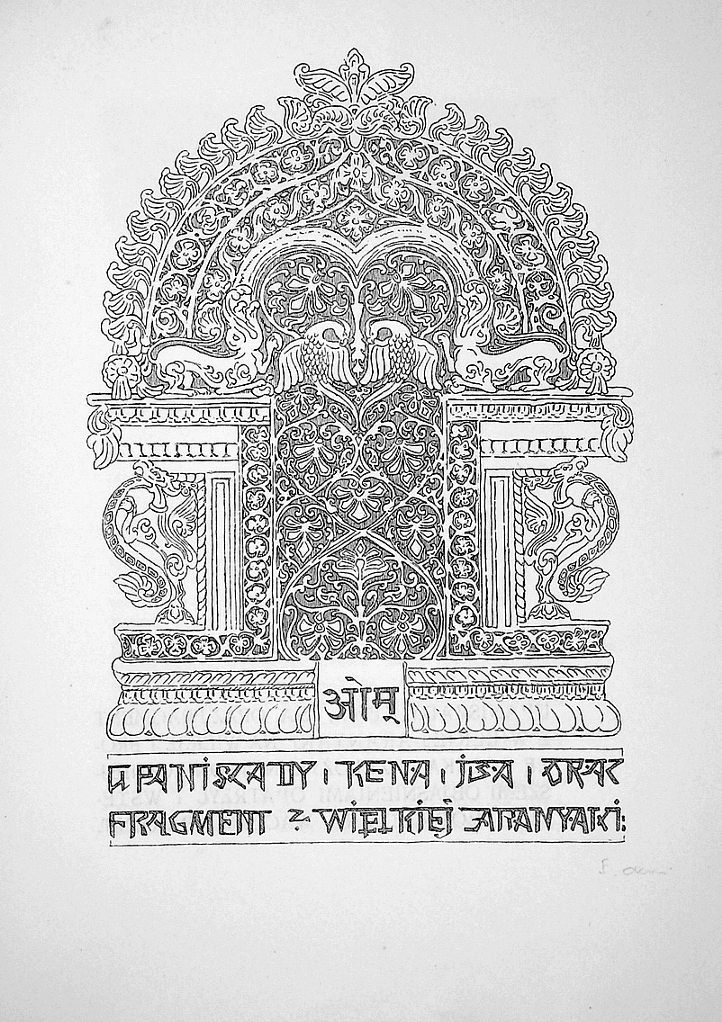 ओम्
UPANISZADY, KENA, ISA, ORAZ
FRAGMENT Z WIELKIEJ ARANYAKI: